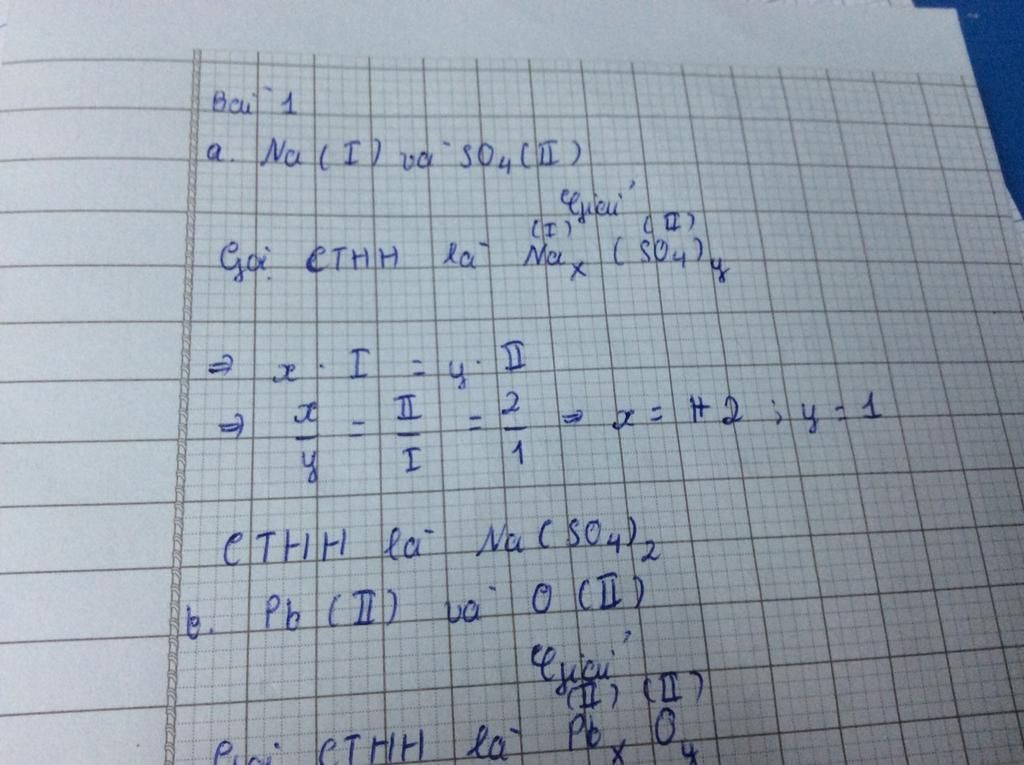 Bài 1
a. Na (I) và SO4 (II)
Giải
(I) (II)
Gọi CTHH là Nax (SO4)y
⇒ x . I = y . II
⇒ x/y = II/I = 2/1 ⇒ x = 2 ; y = 1
CTHH là Na(SO4)2
b. Pb (II) và O (II)
Giải
(II) (II)
Gọi CTHH là Pbx Oy